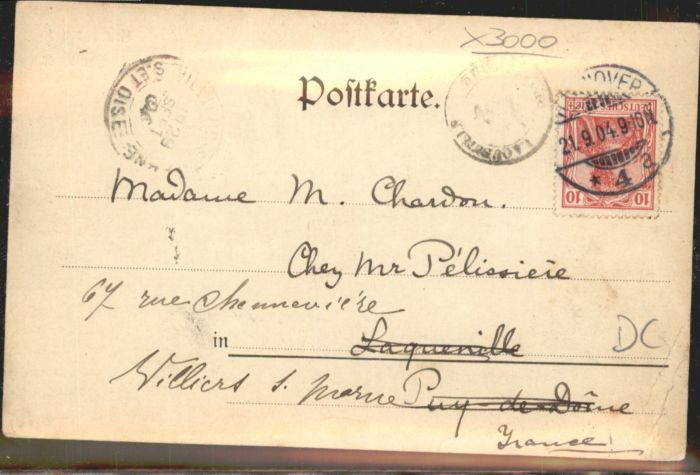 X3000
Postkarte.
S. ET OISE
HANNOVER
21.9.04.9-10
* 4 a
DEUTSCHES REICH
10 10
Madame M. Chardon.
Chez Mr Pélissière
67 rue Chennevière
in Laqueuille
DC
Villiers s. Marne Puy-de-Dôme
France